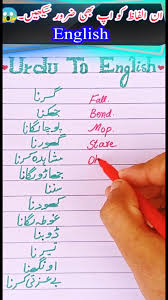 ان الفاظ کو آپ بھی ضرور سیکھیں۔
English
Urdu To English
گرنا Fall.
جھکنا Bend.
پوچا لگانا Mop.
گھورنا Stare
مشاہدہ کرنا Ob
جھاڑو لگانا
سننا
کھودنا
غوطہ لگانا
ڈوبنا
تیرنا
اونگھنا
بے عزتی کرنا